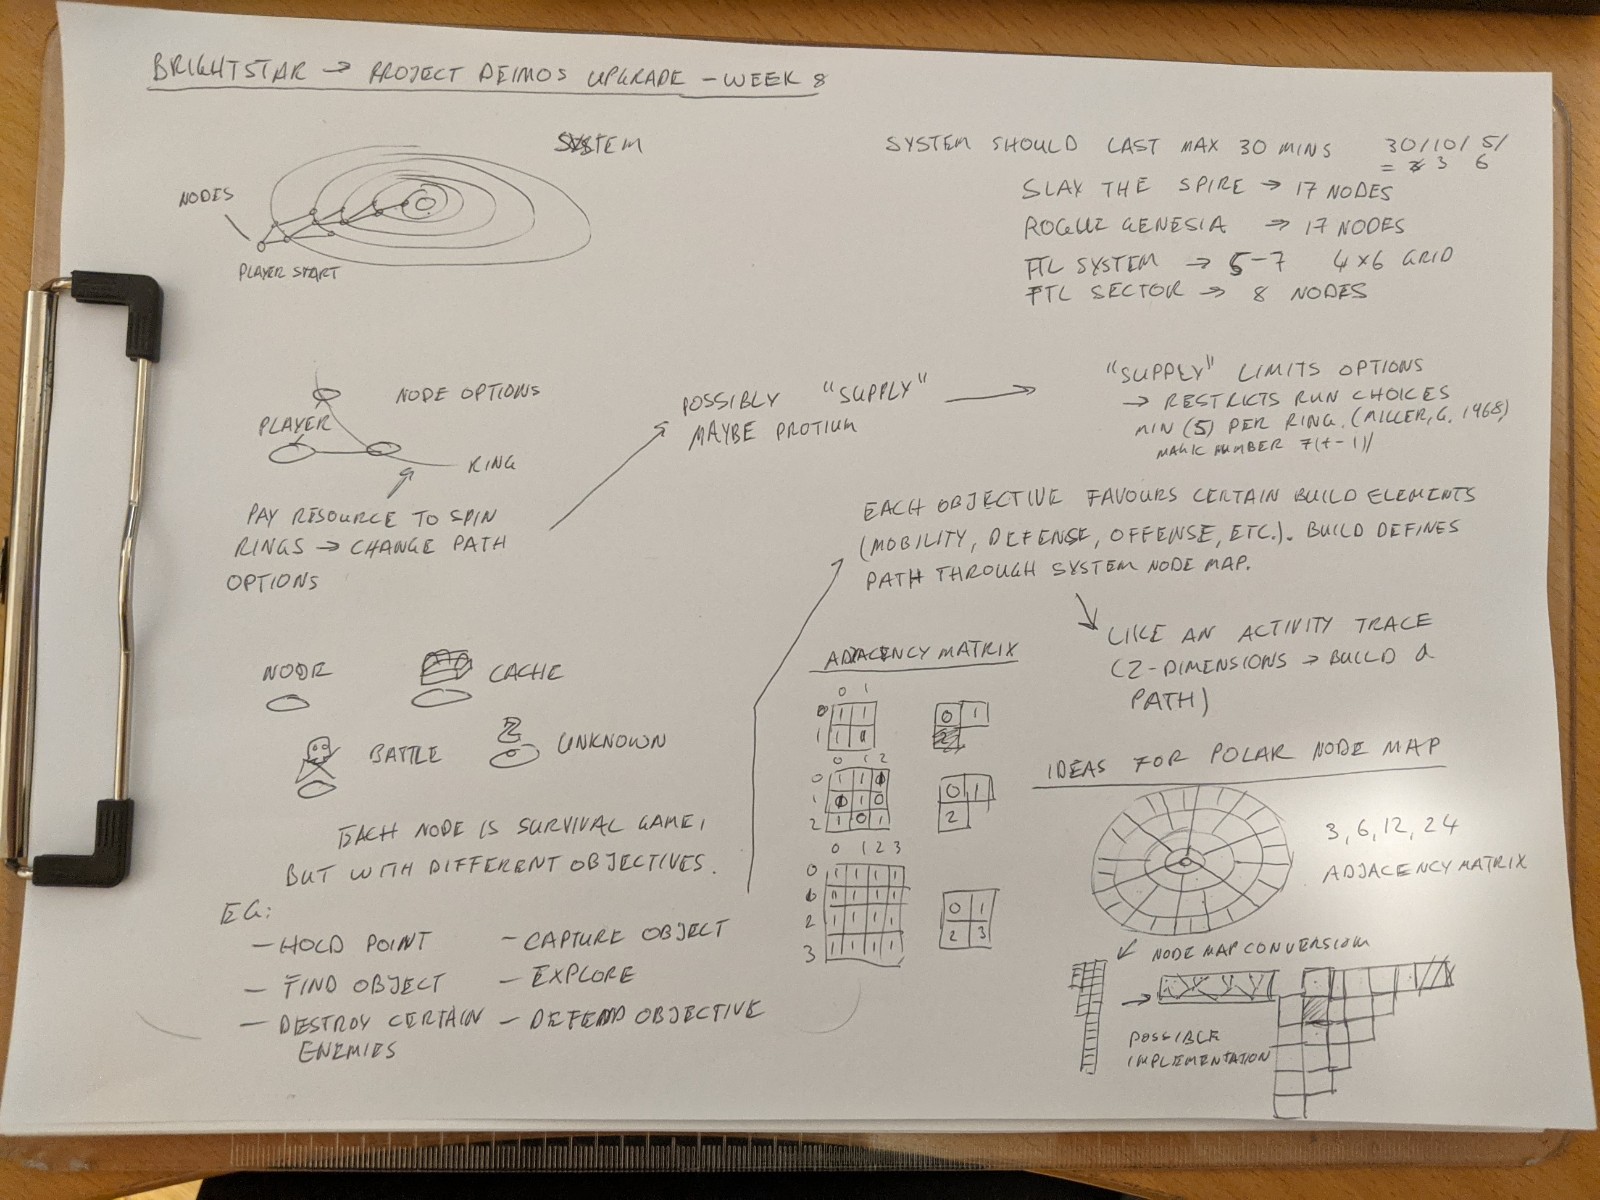 BRIGHTSTAR → PROJECT DEIMOS UPGRADE - WEEK 8
SYSTEM
NODES
PLAYER START
SYSTEM SHOULD LAST MAX 30 MINS 30/10/5/
= 3 6
SLAY THE SPIRE → 17 NODES
ROGUE GENESIA → 17 NODES
FTL SYSTEM → 5-7 4×6 GRID
FTL SECTOR → 8 NODES
NODE OPTIONS
PLAYER
RING
PAY RESOURCE TO SPIN
RINGS → CHANGE PATH
OPTIONS
POSSIBLY "SUPPLY"
MAYBE PROTIUM
"SUPPLY" LIMITS OPTIONS
→ RESTRICTS RUN CHOICES
MIN (5) PER RING. (MILLER, G. 1968)
MAGIC NUMBER 7(+-1)/
EACH OBJECTIVE FAVOURS CERTAIN BUILD ELEMENTS
(MOBILITY, DEFENSE, OFFENSE, ETC.). BUILD DEFINES
PATH THROUGH SYSTEM NODE MAP.
LIKE AN ACTIVITY TRACE
(2-DIMENSIONS → BUILD &
PATH)
NODE
CACHE
BATTLE
UNKNOWN
EACH NODE IS SURVIVAL GAME,
BUT WITH DIFFERENT OBJECTIVES.
EG:
- HOLD POINT
- FIND OBJECT
- DESTROY CERTAIN
ENEMIES
- CAPTURE OBJECT
- EXPLORE
- DEFEND OBJECTIVE
ADJACENCY MATRIX
0 1
0 1 1
1 1
0 1
0 1 2
0 1 1 0
1 0 1 0
2 1 0 1
0 1
2
0 1 2 3
0 1 1 1 1
1 1 1 1
2 1 1 1 1
3 1 1 1 1
0 1
2 3
IDEAS FOR POLAR NODE MAP
3, 6, 12, 24
ADJACENCY MATRIX
NODE MAP CONVERSION
POSSIBLE
IMPLEMENTATION